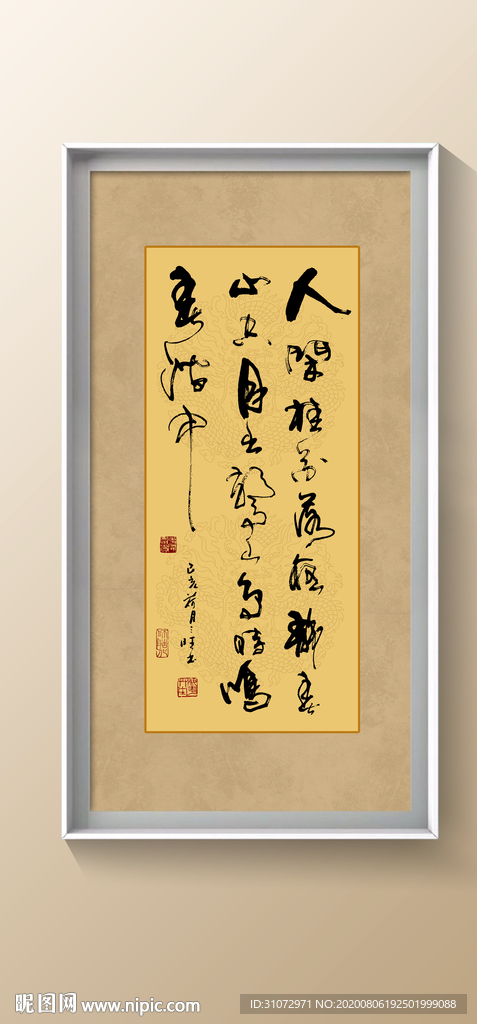 人閑桂花落夜靜春
山空月出驚山鳥時鳴
春澗中
己亥荷月
昵图网 www.nipic.com
ID:31072971 NO:20200806192501999088